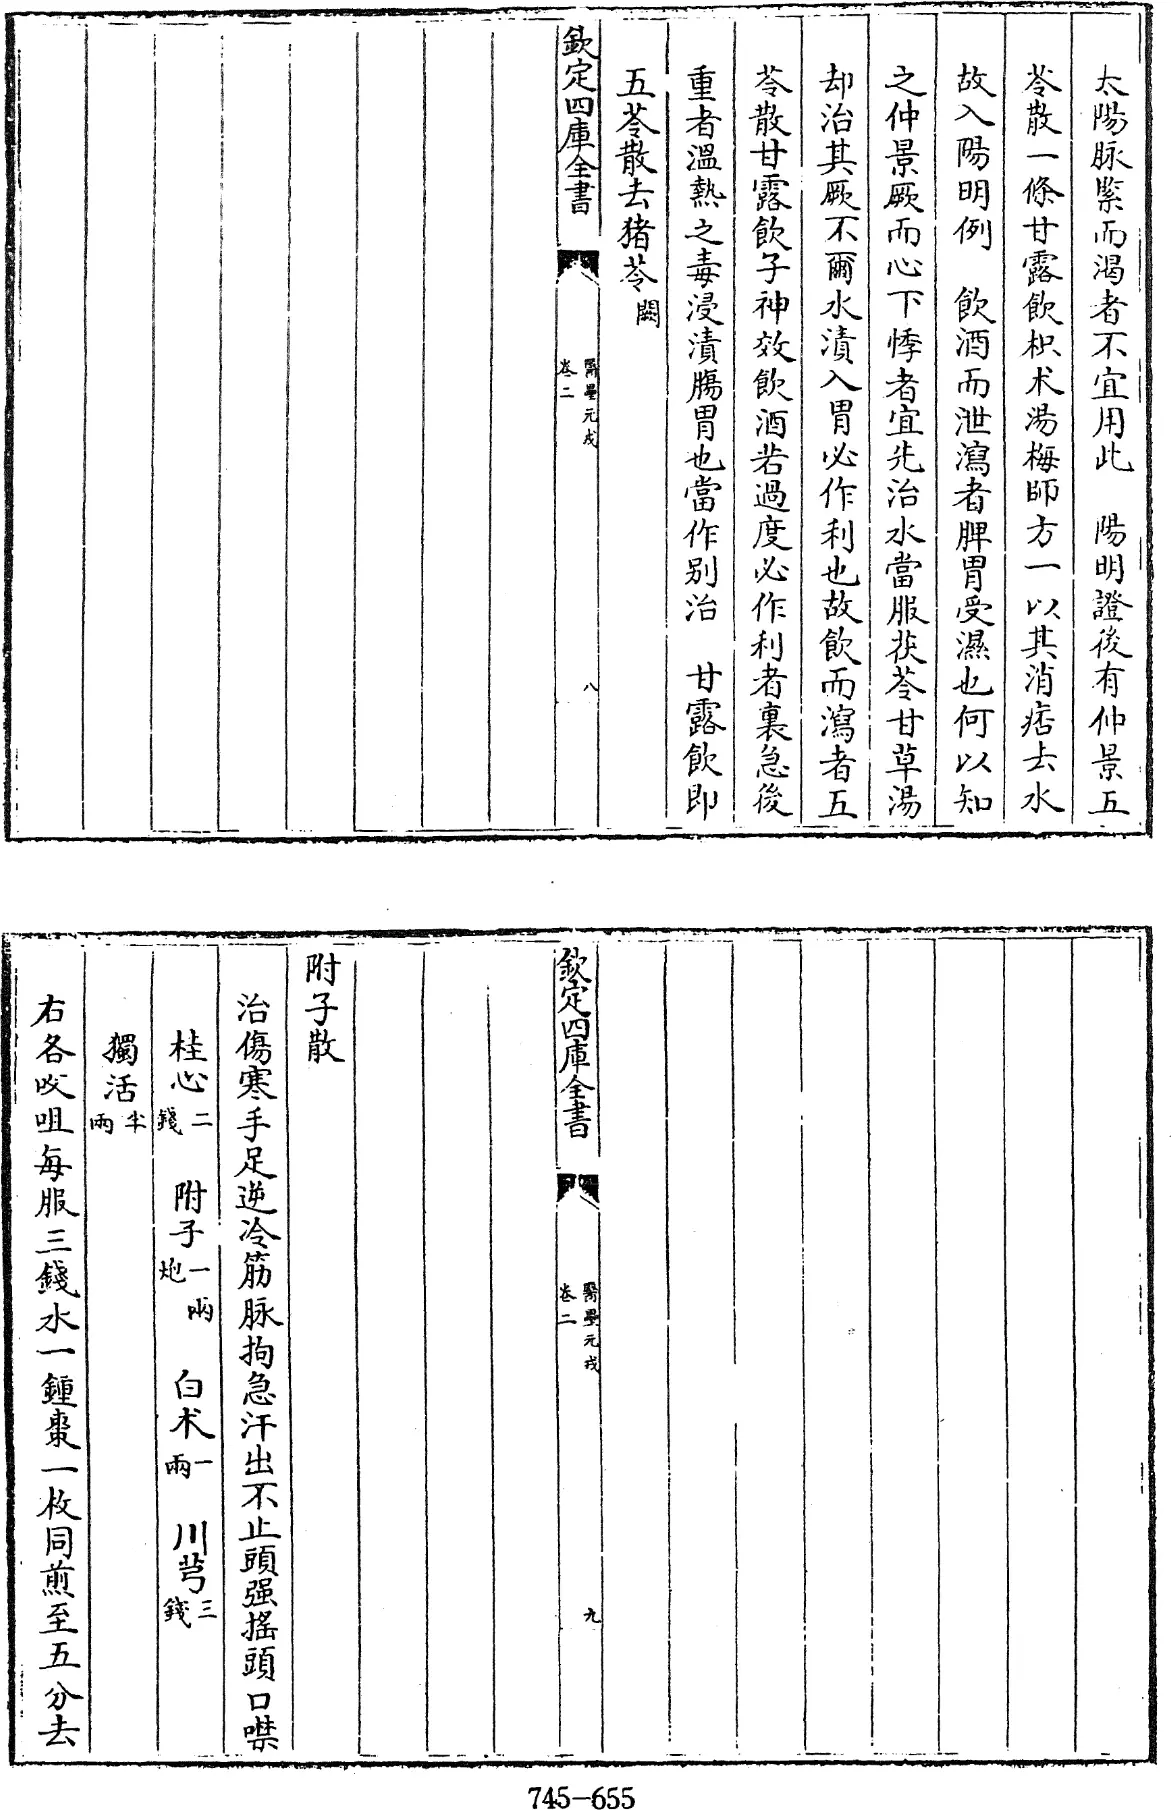 太陽脉緊而渴者不宜用此　陽明證後有仲景五
苓散一條甘露飲枳术湯梅師方一以其消痞去水
故入陽明例　飲酒而泄瀉者脾胃受濕也何以知
之仲景厥而心下悸者宜先治水當服茯苓甘草湯
却治其厥不爾水漬入胃必作利也故飲而瀉者五
苓散甘露飲子神效飲酒若過度必作利者裏急後
重者溫熱之毒浸漬腸胃也當作别治　甘露飲即
五苓散去猪苓闕
欽定四庫全書
醫壘元戎
卷二
八
欽定四庫全書
醫壘元戎
卷二
九
附子散
治傷寒手足逆冷筋脉拘急汗出不止頭强揺頭口噤
桂心二錢　附子一兩炮　白术一兩　川芎三錢
獨活半兩
右各㕮咀每服三錢水一鍾棗一枚同煎至五分去
745-655